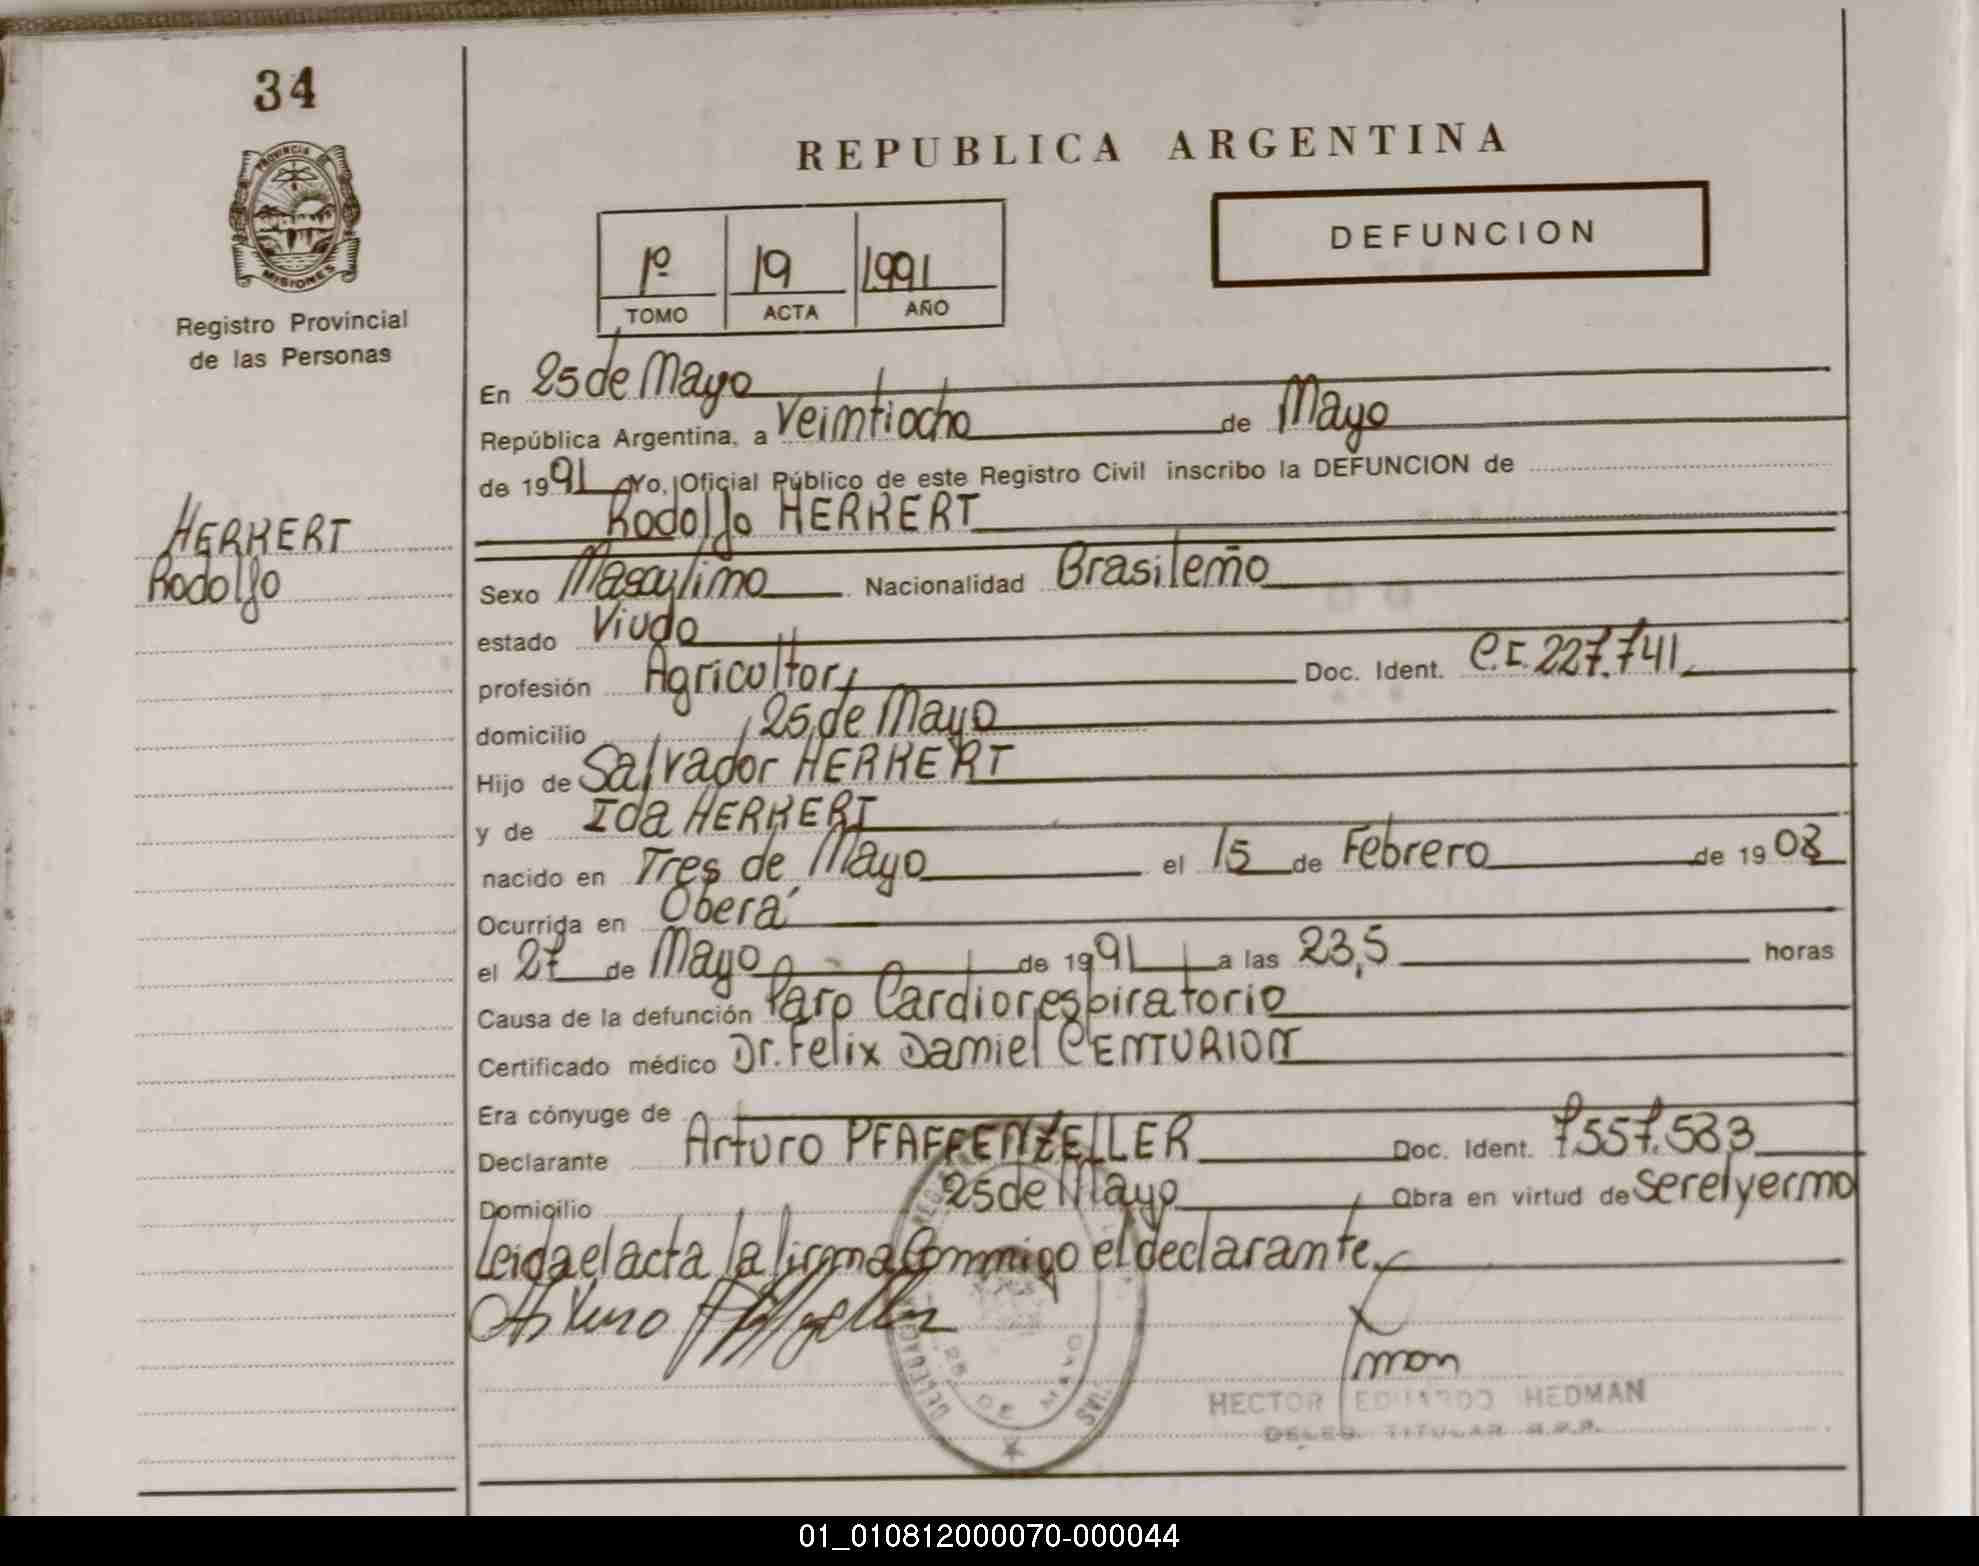 34
PROVINCIA DE
MISIONES
Registro Provincial
de las Personas
HERKERT
Rodolfo
REPUBLICA ARGENTINA
DEFUNCION
1º 19 1991
TOMO ACTA AÑO
En 25 de Mayo
República Argentina, a Veintiocho de Mayo
de 1991 Yo, Oficial Público de este Registro Civil inscribo la DEFUNCION de
Rodolfo HERKERT
Sexo Masculino Nacionalidad Brasileño
estado Viudo
profesión Agricultor Doc. Ident. C.I. 227.741
domicilio 25 de Mayo
Hijo de Salvador HERKERT
y de Ida HERKERT
nacido en Tres de Mayo el 15 de Febrero de 1908
Ocurrida en Oberá
el 27 de Mayo de 1991 a las 23,5 horas
Causa de la defunción Paro Cardiorespiratorio
Certificado médico Dr. Felix Daniel CENTURION
Era cónyuge de
Declarante Arturo PFAFFENZELLER Doc. Ident. 7.557.583
Domicilio 25 de Mayo Obra en virtud de ser el yerno
Leida el acta la firma Conmigo el declarante.
HECTOR EDUARDO HEDMAN
DELEG. TITULAR R.P.P.
25 DE MAYO
01_010812000070-000044